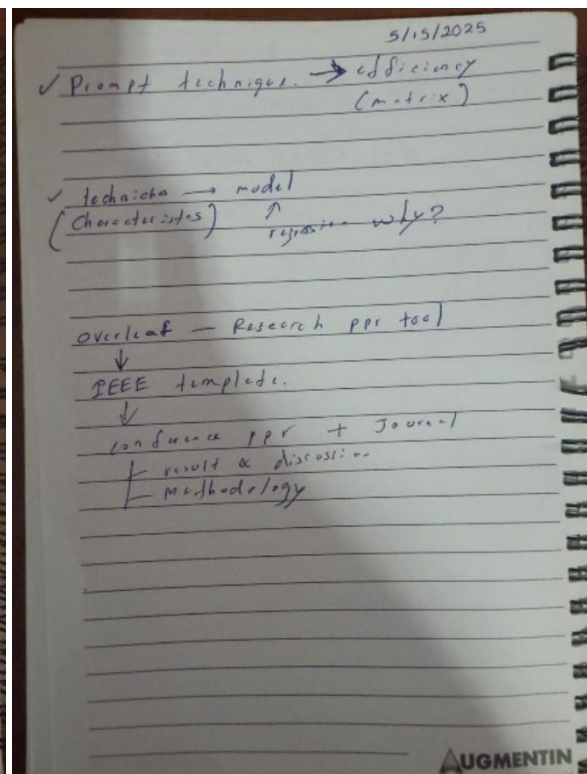 5/15/2025
✓ Prompt technique. → efficiency
(matrix)
✓ techniches → model
(Characteristes) ↑
regression why?
overleaf — Research ppr tool
↓
IEEE template.
↓
conference ppr + Journal
result & discussion
Methodology
AUGMENTIN